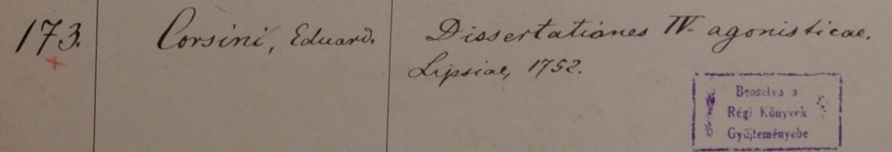 173. Corsini, Eduard. Dissertationes IV. agonisticae.
Lipsiae, 1752.
Beosztva a
Régi Könyvek
Gyűjteményebe